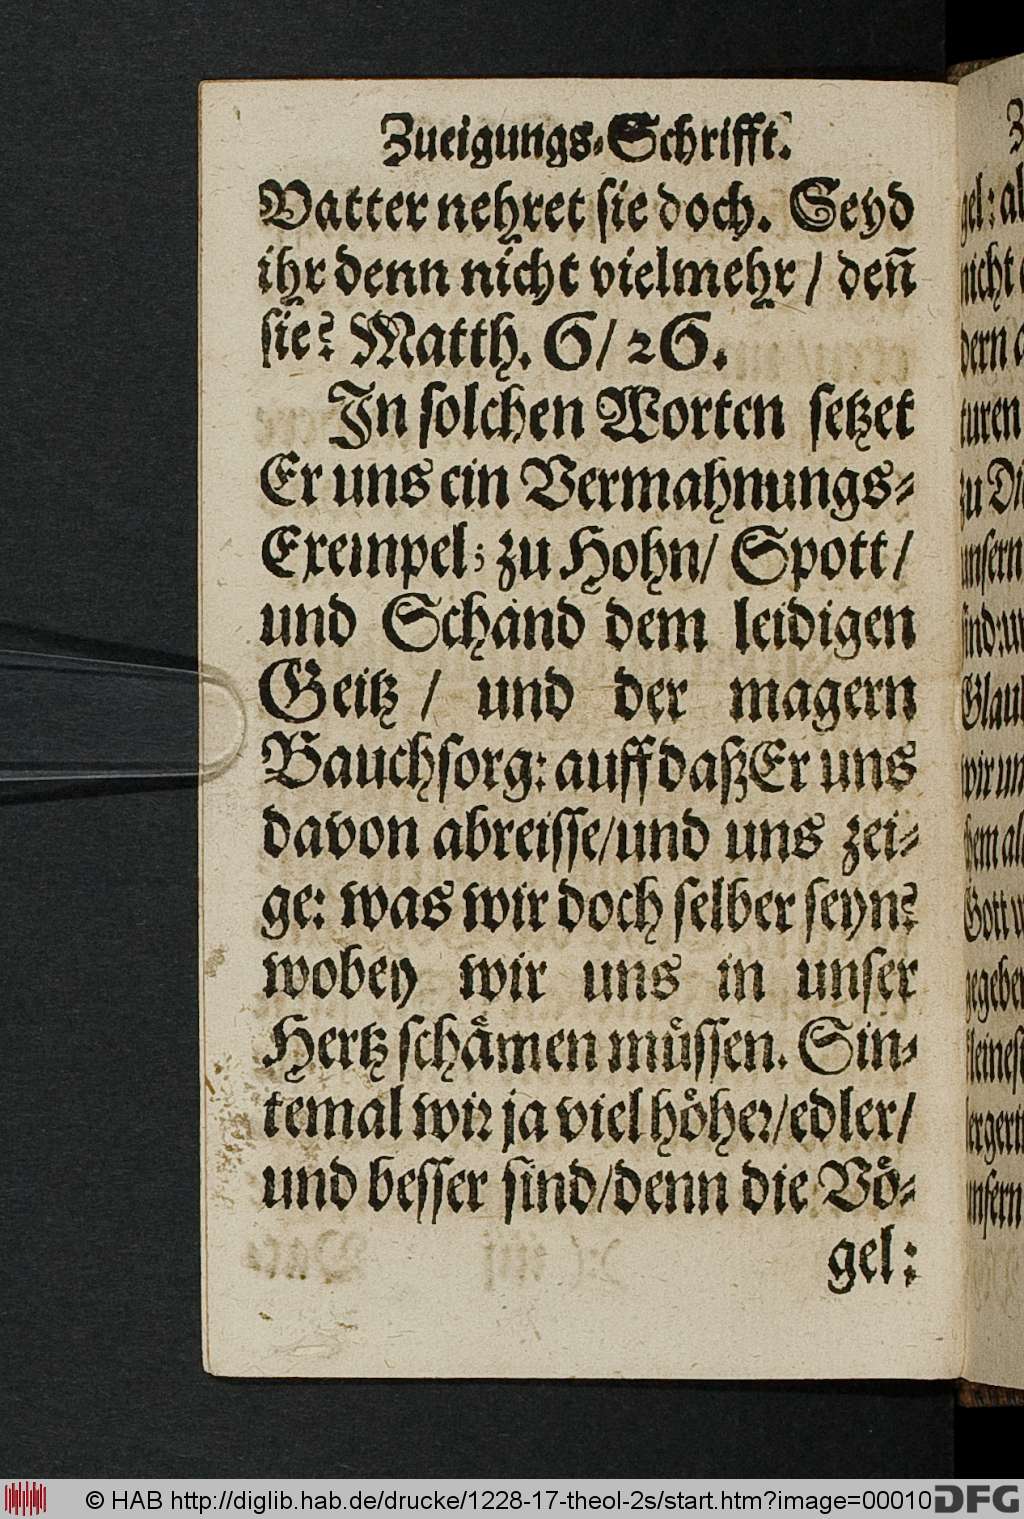 Zueigungs-Schrifft.
Vatter nehret sie doch. Seyd
ihr denn nicht vielmehr / deñ
sie? Matth. 6/26.
In solchen Worten setzet
Er uns ein Vermahnungs-
Exempel; zu Hohn/ Spott/
und Schand dem leidigen
Geitz / und der magern
Bauchsorg: auff daß Er uns
davon abreisse/und uns zei-
ge: was wir doch selber seyn?
wobey wir uns in unser
Hertz schaͤmen muͤssen. Sin-
temal wir ja viel hoͤher/edler/
und besser sind/denn die Voͤ-
gel:
© HAB http://diglib.hab.de/drucke/1228-17-theol-2s/start.htm?image=00010
DFG